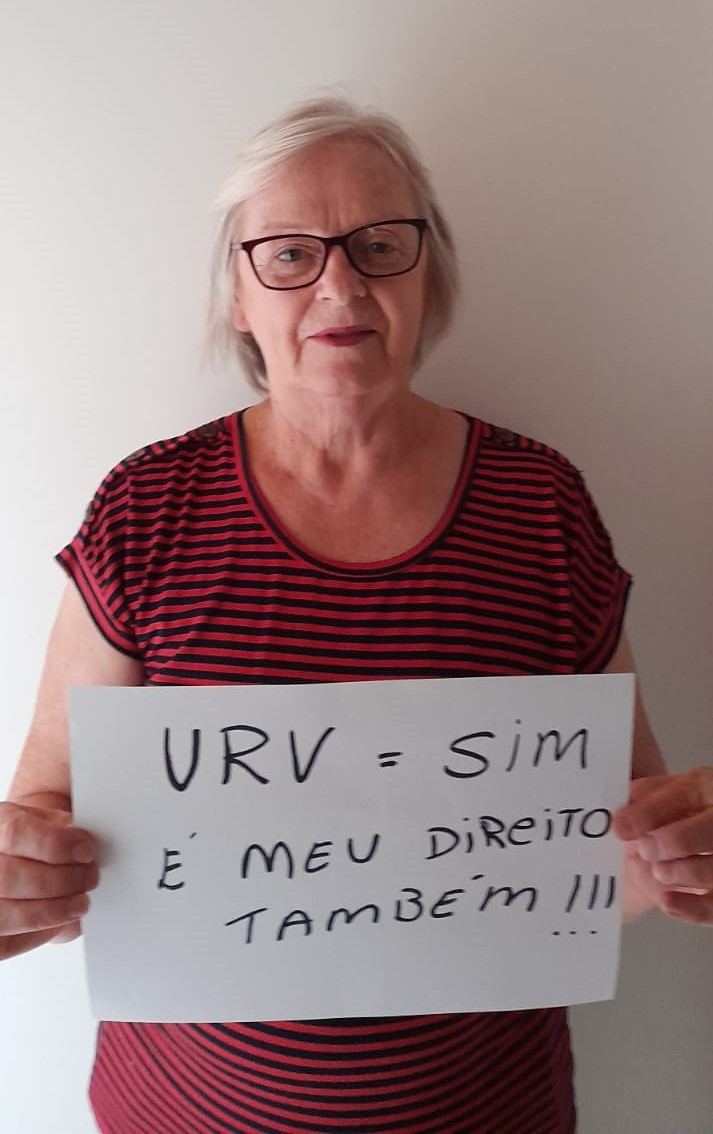 URV = SiM
É MEU DiReiTO
TAMBÉM !!!